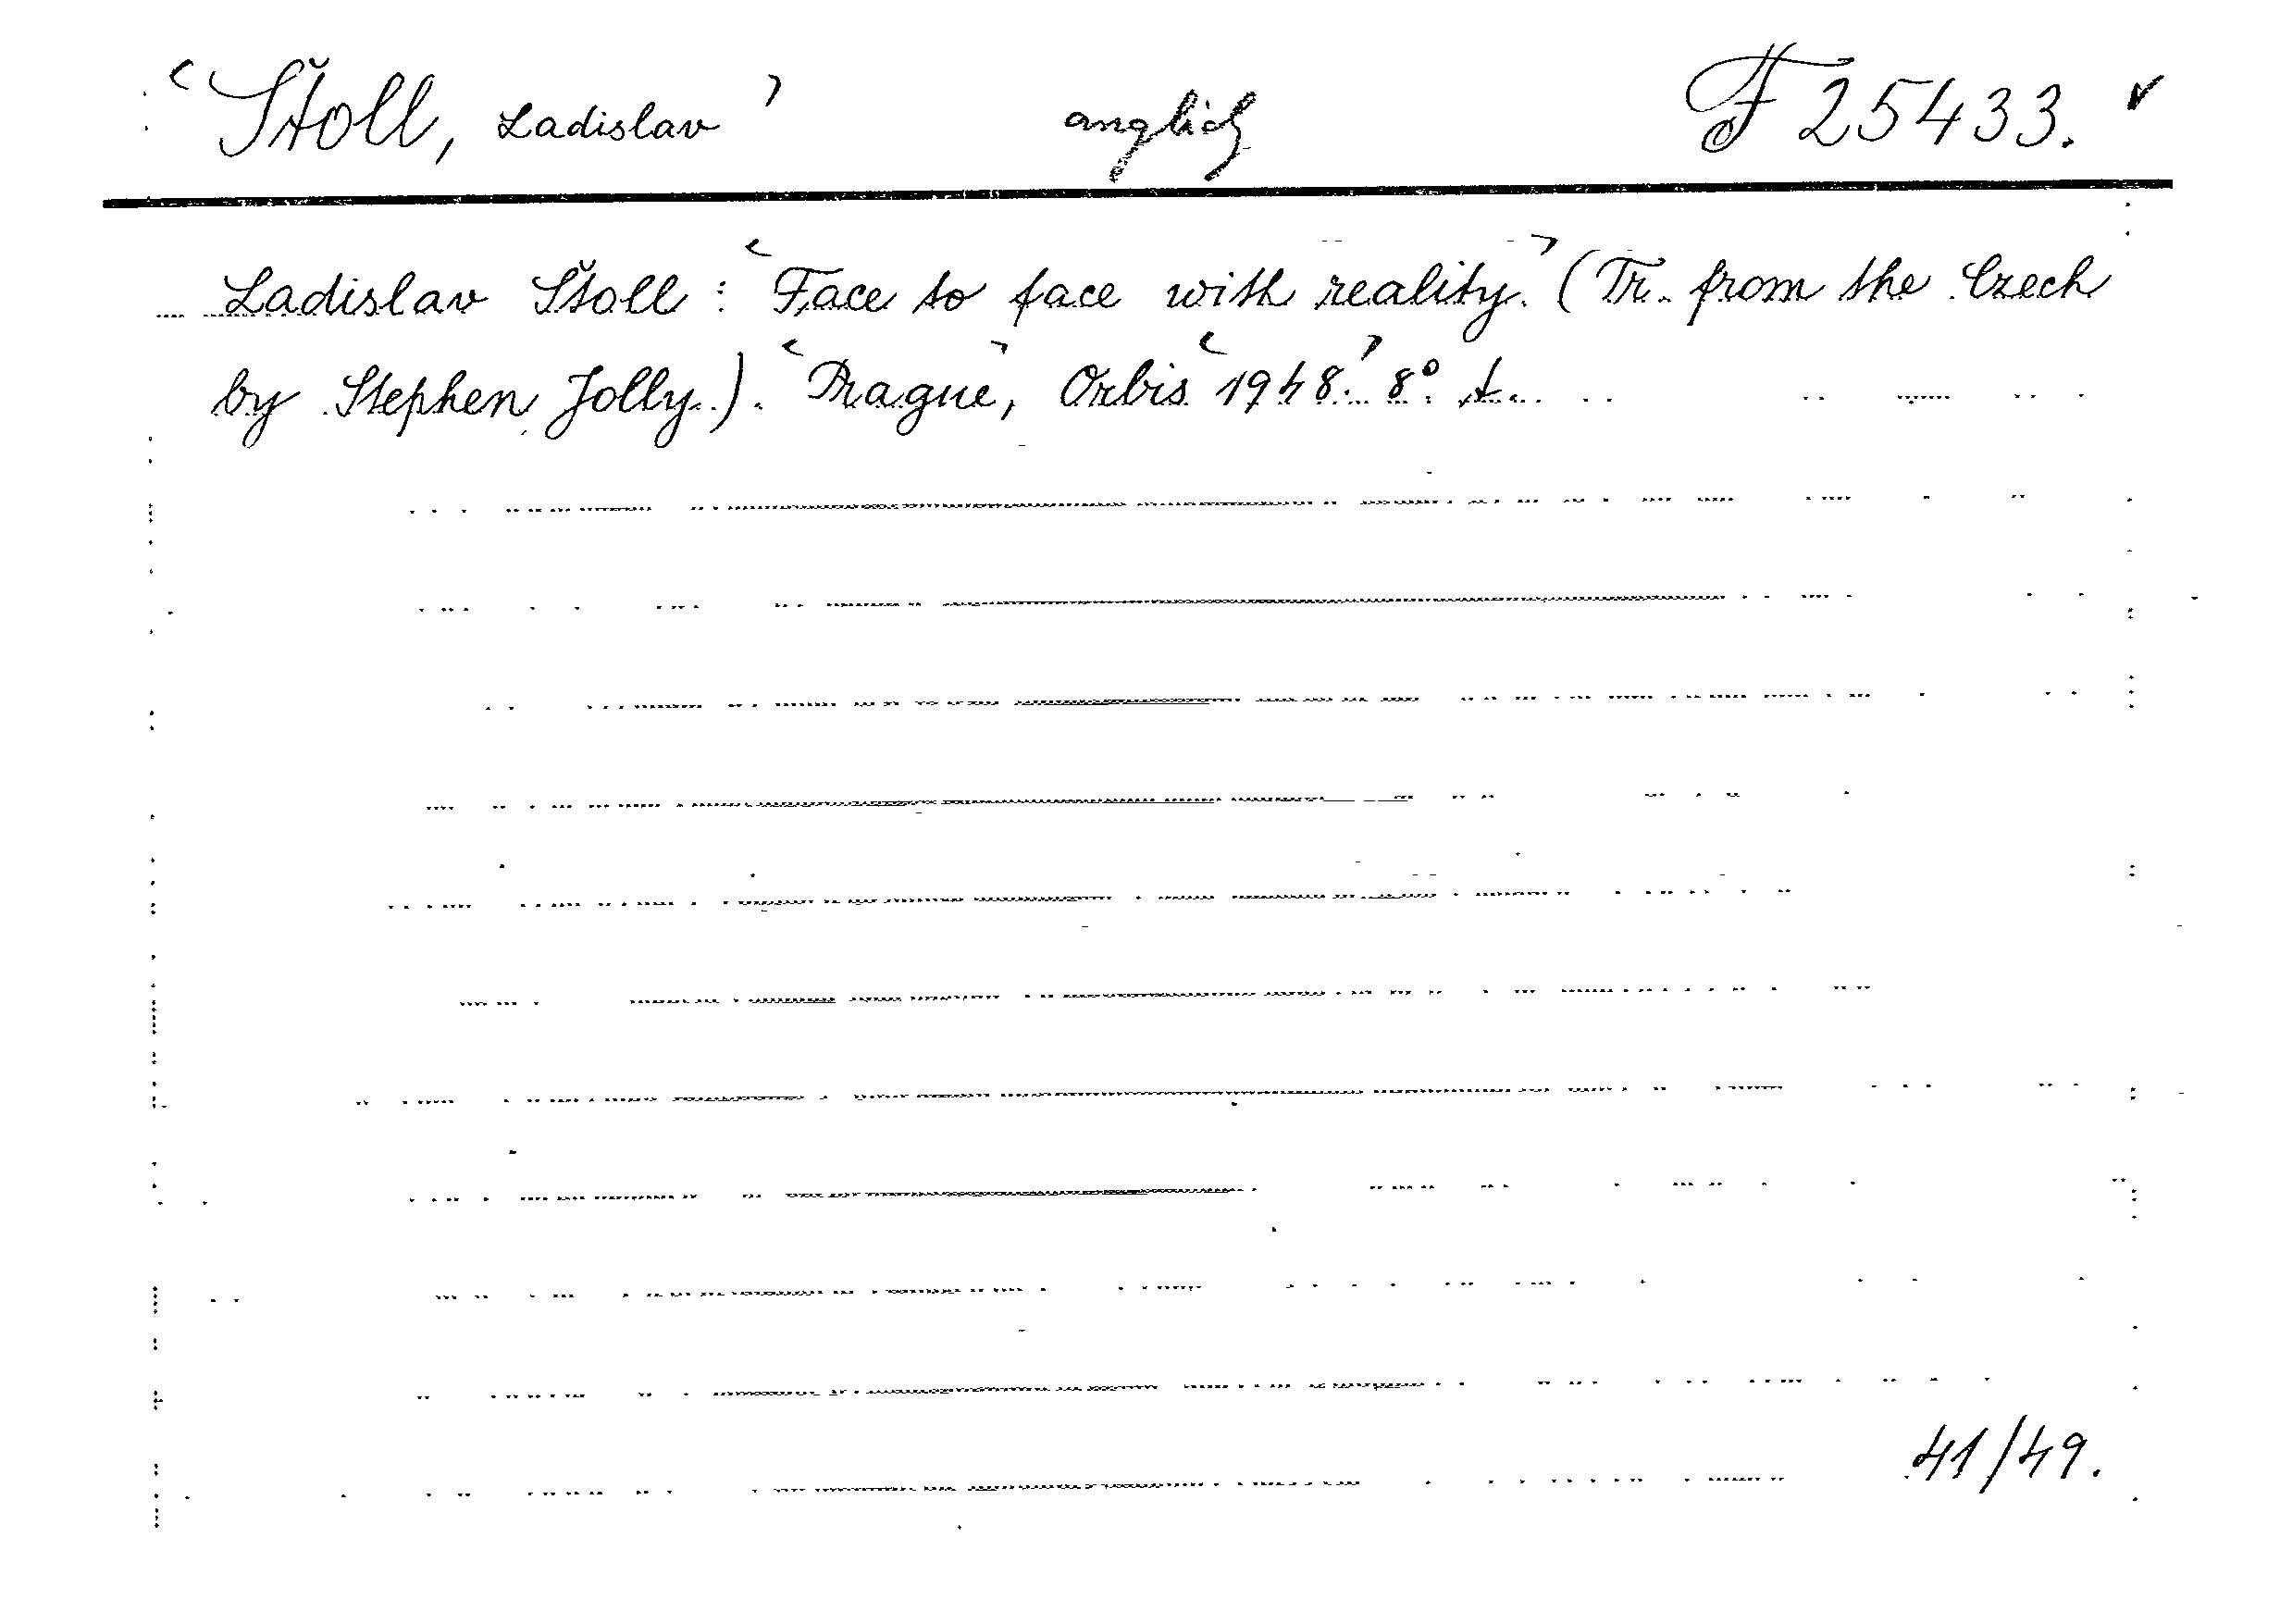 ‹Štoll, Ladislav› anglicky F 25433. ✓
Ladislav Štoll: ‹Face to face with reality.› (Tr. from the Czech
by Stephen Jolly.). ‹Prague›, Orbis ‹1948.› 8°.
41/49.